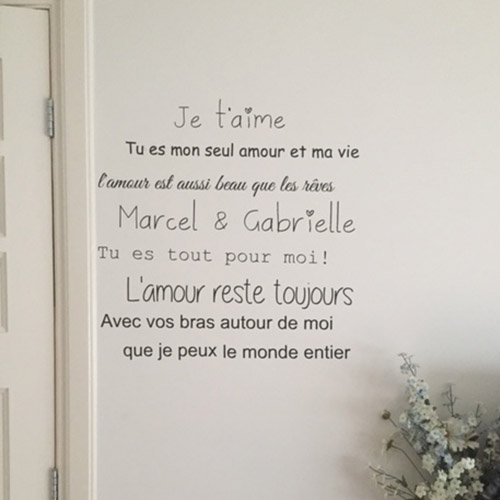 Je t'aime
Tu es mon seul amour et ma vie
l'amour est aussi beau que les rêves
Marcel & Gabrielle
Tu es tout pour moi!
L'amour reste toujours
Avec vos bras autour de moi
que je peux le monde entier